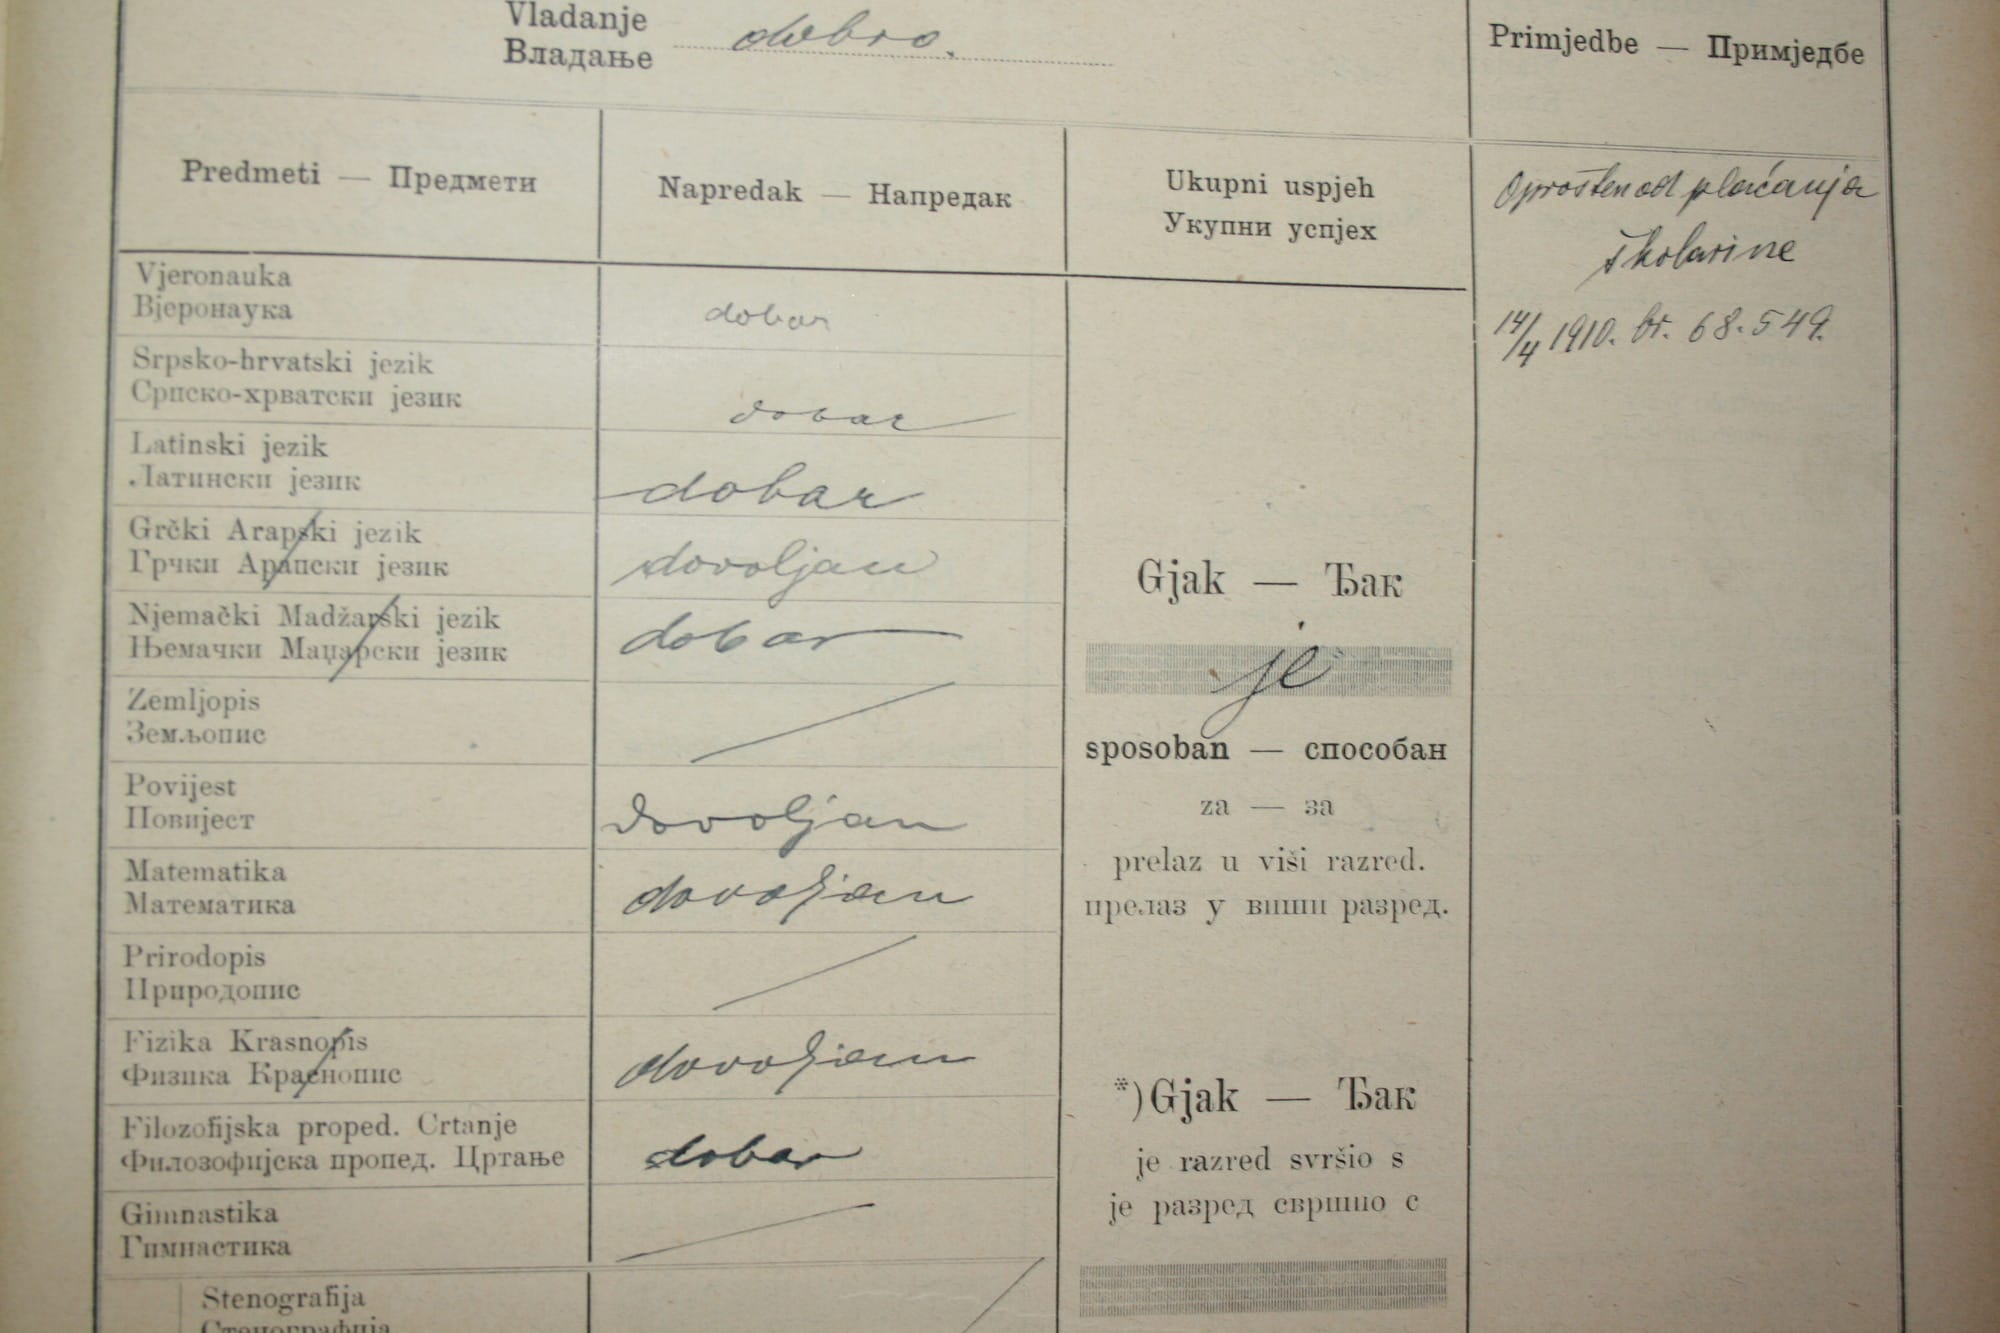 Vladanje
Владање
dobro.
Primjedbe — Примједбе
Predmeti — Предмети
Napredak — Напредак
Ukupni uspjeh
Укупни успјех
Oprošten od plaćanja
školarine
14/4 1910. br. 68.549.
Vjeronauka
Вјеронаука
dobar
Srpsko-hrvatski jezik
Српско-хрватски језик
dobar
Latinski jezik
Латински језик
dobar
Grčki Arapski jezik
Грчки Арапски језик
dovoljan
Njemački Madžarski jezik
Њемачки Маџарски језик
dobar
Zemljopis
Земљопис
Povijest
Повијест
dovoljan
Matematika
Математика
dovoljan
Prirodopis
Природопис
Fizika Krasnopis
Физика Краснопис
dovoljan
Filozofijska proped. Crtanje
Филозофијска пропед. Цртање
dobar
Gimnastika
Гимнастика
Stenografija
Стенографија
Gjak — Ђак
je
sposoban — способан
za — за
prelaz u viši razred.
прелаз у виши разред.
*) Gjak — Ђак
je razred svršio s
је разред свршио с